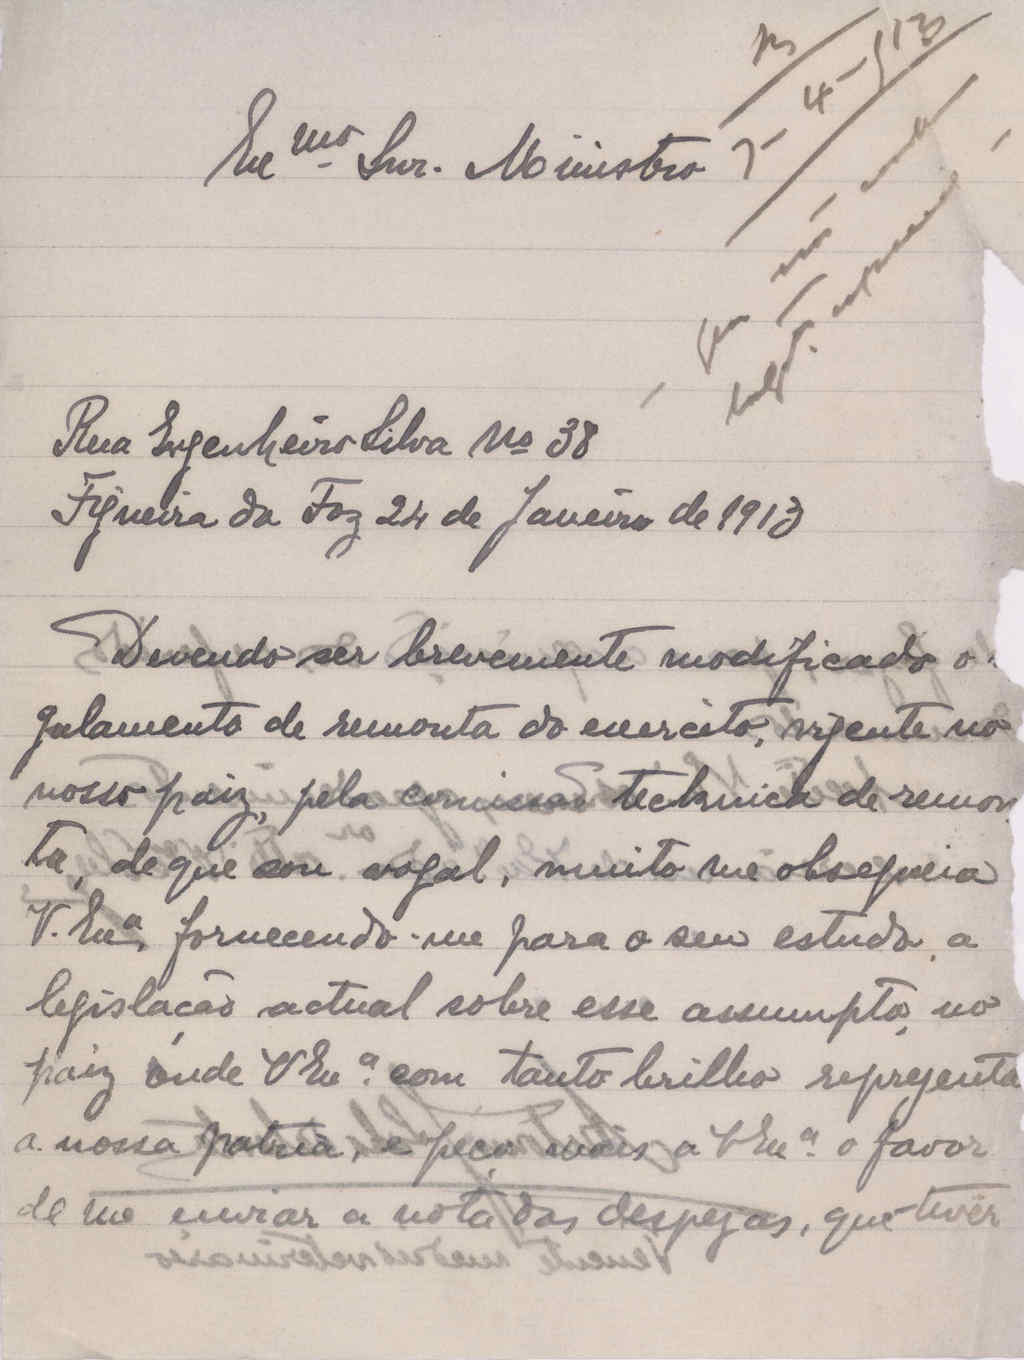 R
7-4-913
Exmo Snr. Ministro
não
Rua Engenheiro Silva No 38
Figueira da Foz 24 de Janeiro de 1913
Devendo ser brevemente modificado o
gulamento de remonta do exercito, vigente no
nosso paiz, pela comissão technica de remon
ta, de que sou vogal, muito me obsequeia
V. Exa, fornecendo-me para o seu estudo, a
legislacão actual sobre esse assumpto, no
paiz onde V Exa. com tanto brilho reprezenta
a nossa patria, e peço mais a V Exa. o favor
de me enviar a nota das despezas, que tiver
Tenente medico veterinario